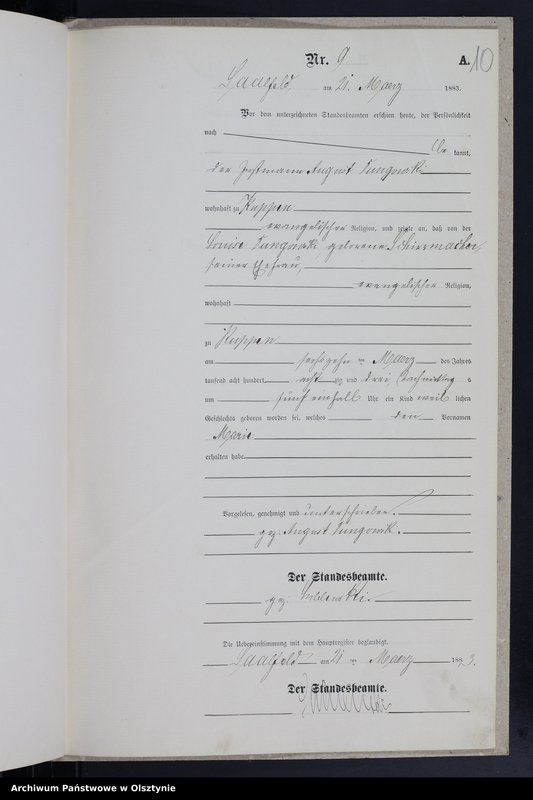 Nr. 9
A. 10
Saalfeld am 21. Maerz 1883.
Vor dem unterzeichneten Standesbeamten erschien heute, der Persönlichkeit
nach
be kannt,
der August
wohnhaft zu Kuppen
evangelischer Religion, und zeigte an, daß von der
geborene
seiner Ehefrau,
evangelischer Religion,
wohnhaft
zu Kuppen
am sechszehn ten Maerz des Jahres
tausend acht hundert acht zig und drei Nachmittag s
um fünf einhalb Uhr ein Kind weib lichen
Geschlechts geboren worden sei, welches den Vornamen
Marie
erhalten habe.
Vorgelesen, genehmigt und unterschrieben.
gez. August
Der Standesbeamte.
gez.
Die Uebereinstimmung mit dem Hauptregister beglaubigt.
Saalfeld am 21 ten Maerz 1883.
Der Standesbeamte.
Archiwum Państwowe w Olsztynie